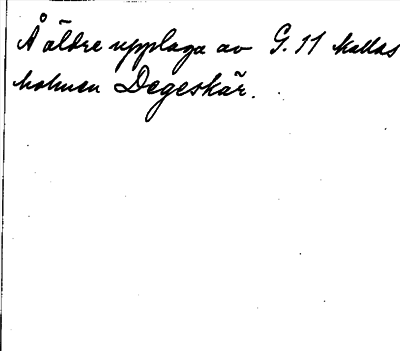 Å äldre upplaga av G. 11 kallas
holmen Degeskär.